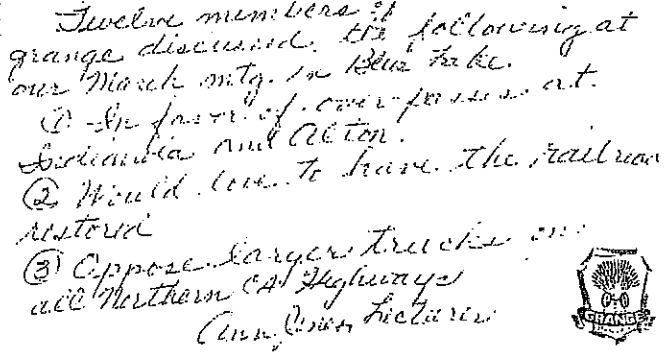 Twelve members of
grange discussed the following at
our March mtg. in Blue Lake.
① In favor of over passes at
Indianola and Alton.
② Would love to have the railroad
restored
③ Oppose larger trucks on
all Northern CA Highways
Ann Lecturer
GRANGE